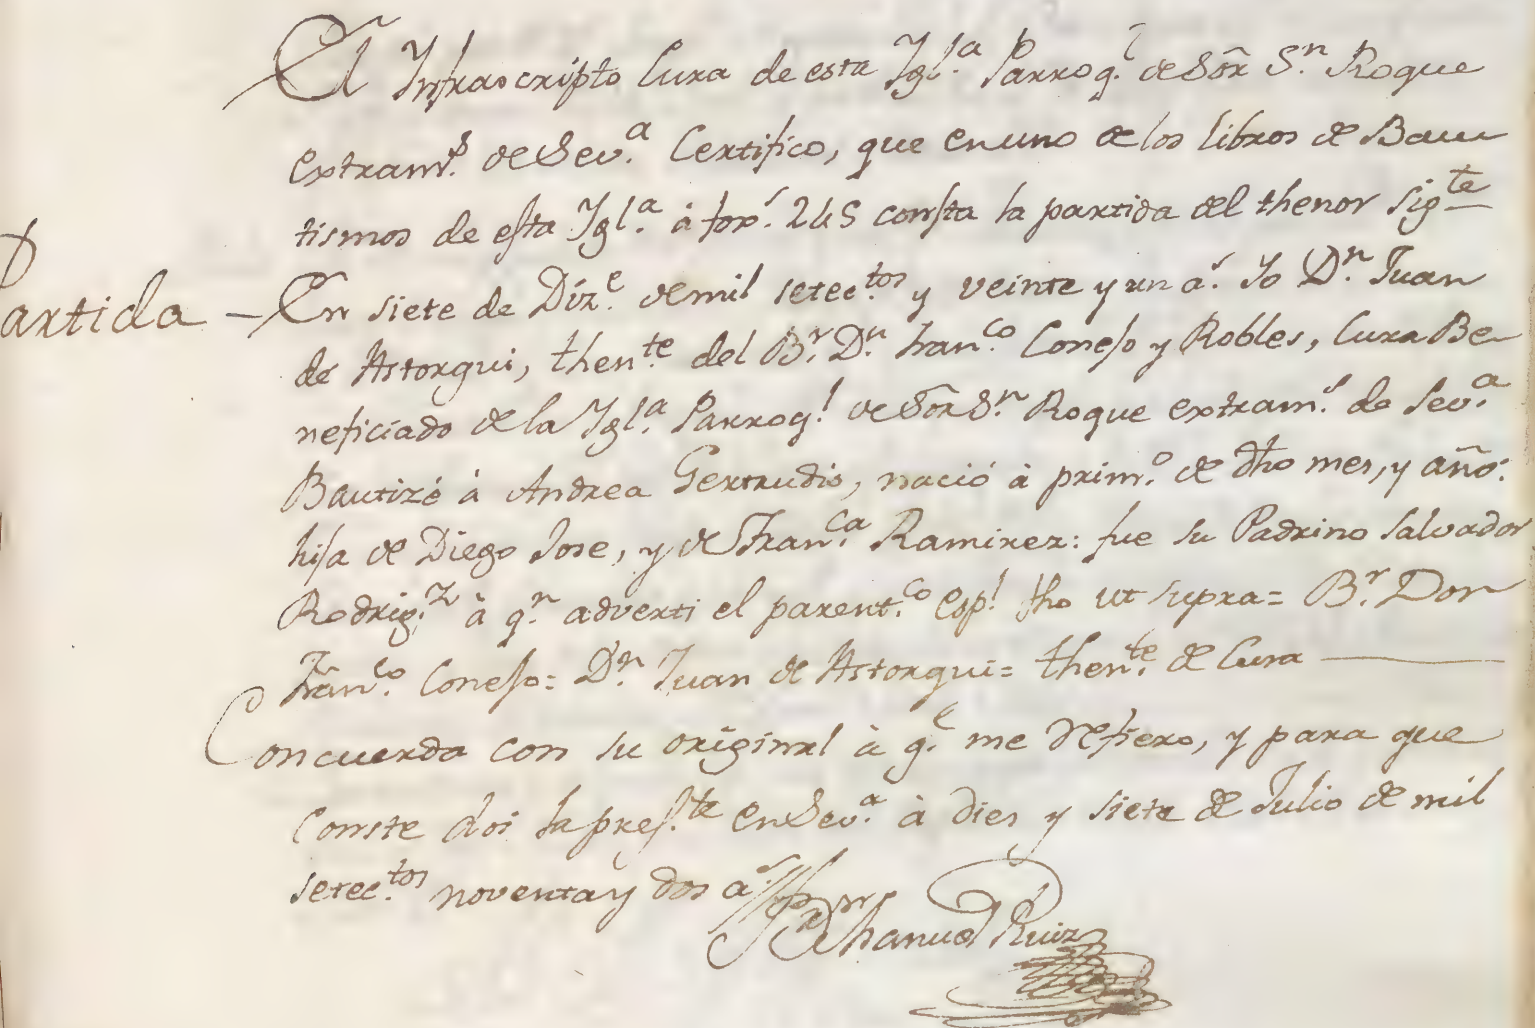 El Infrascripto Cura de esta Igl.ª Parroq.l de Sõr S.n Roque
extram.s de Sev.ª Certifico, que en uno de los libros de Bau
tismos de esta Igl.ª à fox.s 245 consta la partida del thenor sig.te
Partida — En siete de Diz.e de mil setec.tos y veinte y un a.s Yo D.n Juan
de Astorgui, then.te del B.r D.n Fran.co Conejo y Robles, Cura Be-
neficiado de la Igl.ª Parroq.l de Sõr S.n Roque extram.s de Sev.ª
Bautizé à Andrea Gertrudis, nació à prim.o de dho mes, y año:
hija de Diego Jose, y de Fran.ca Ramirez: fue su Padrino Salvador
Rodrig.z à q.n adverti el parent.co esp.l fho ut supra= B.r Don
Fran.co Conejo= D.n Juan de Astorgui= then.te de Cura
Concuerda con su original à q.e me refiero, y para que
conste doi la pres.te en Sev.ª à dies y siete de Julio de mil
setec.tos noventa y dos a.s
D.n Manuel Ruiz